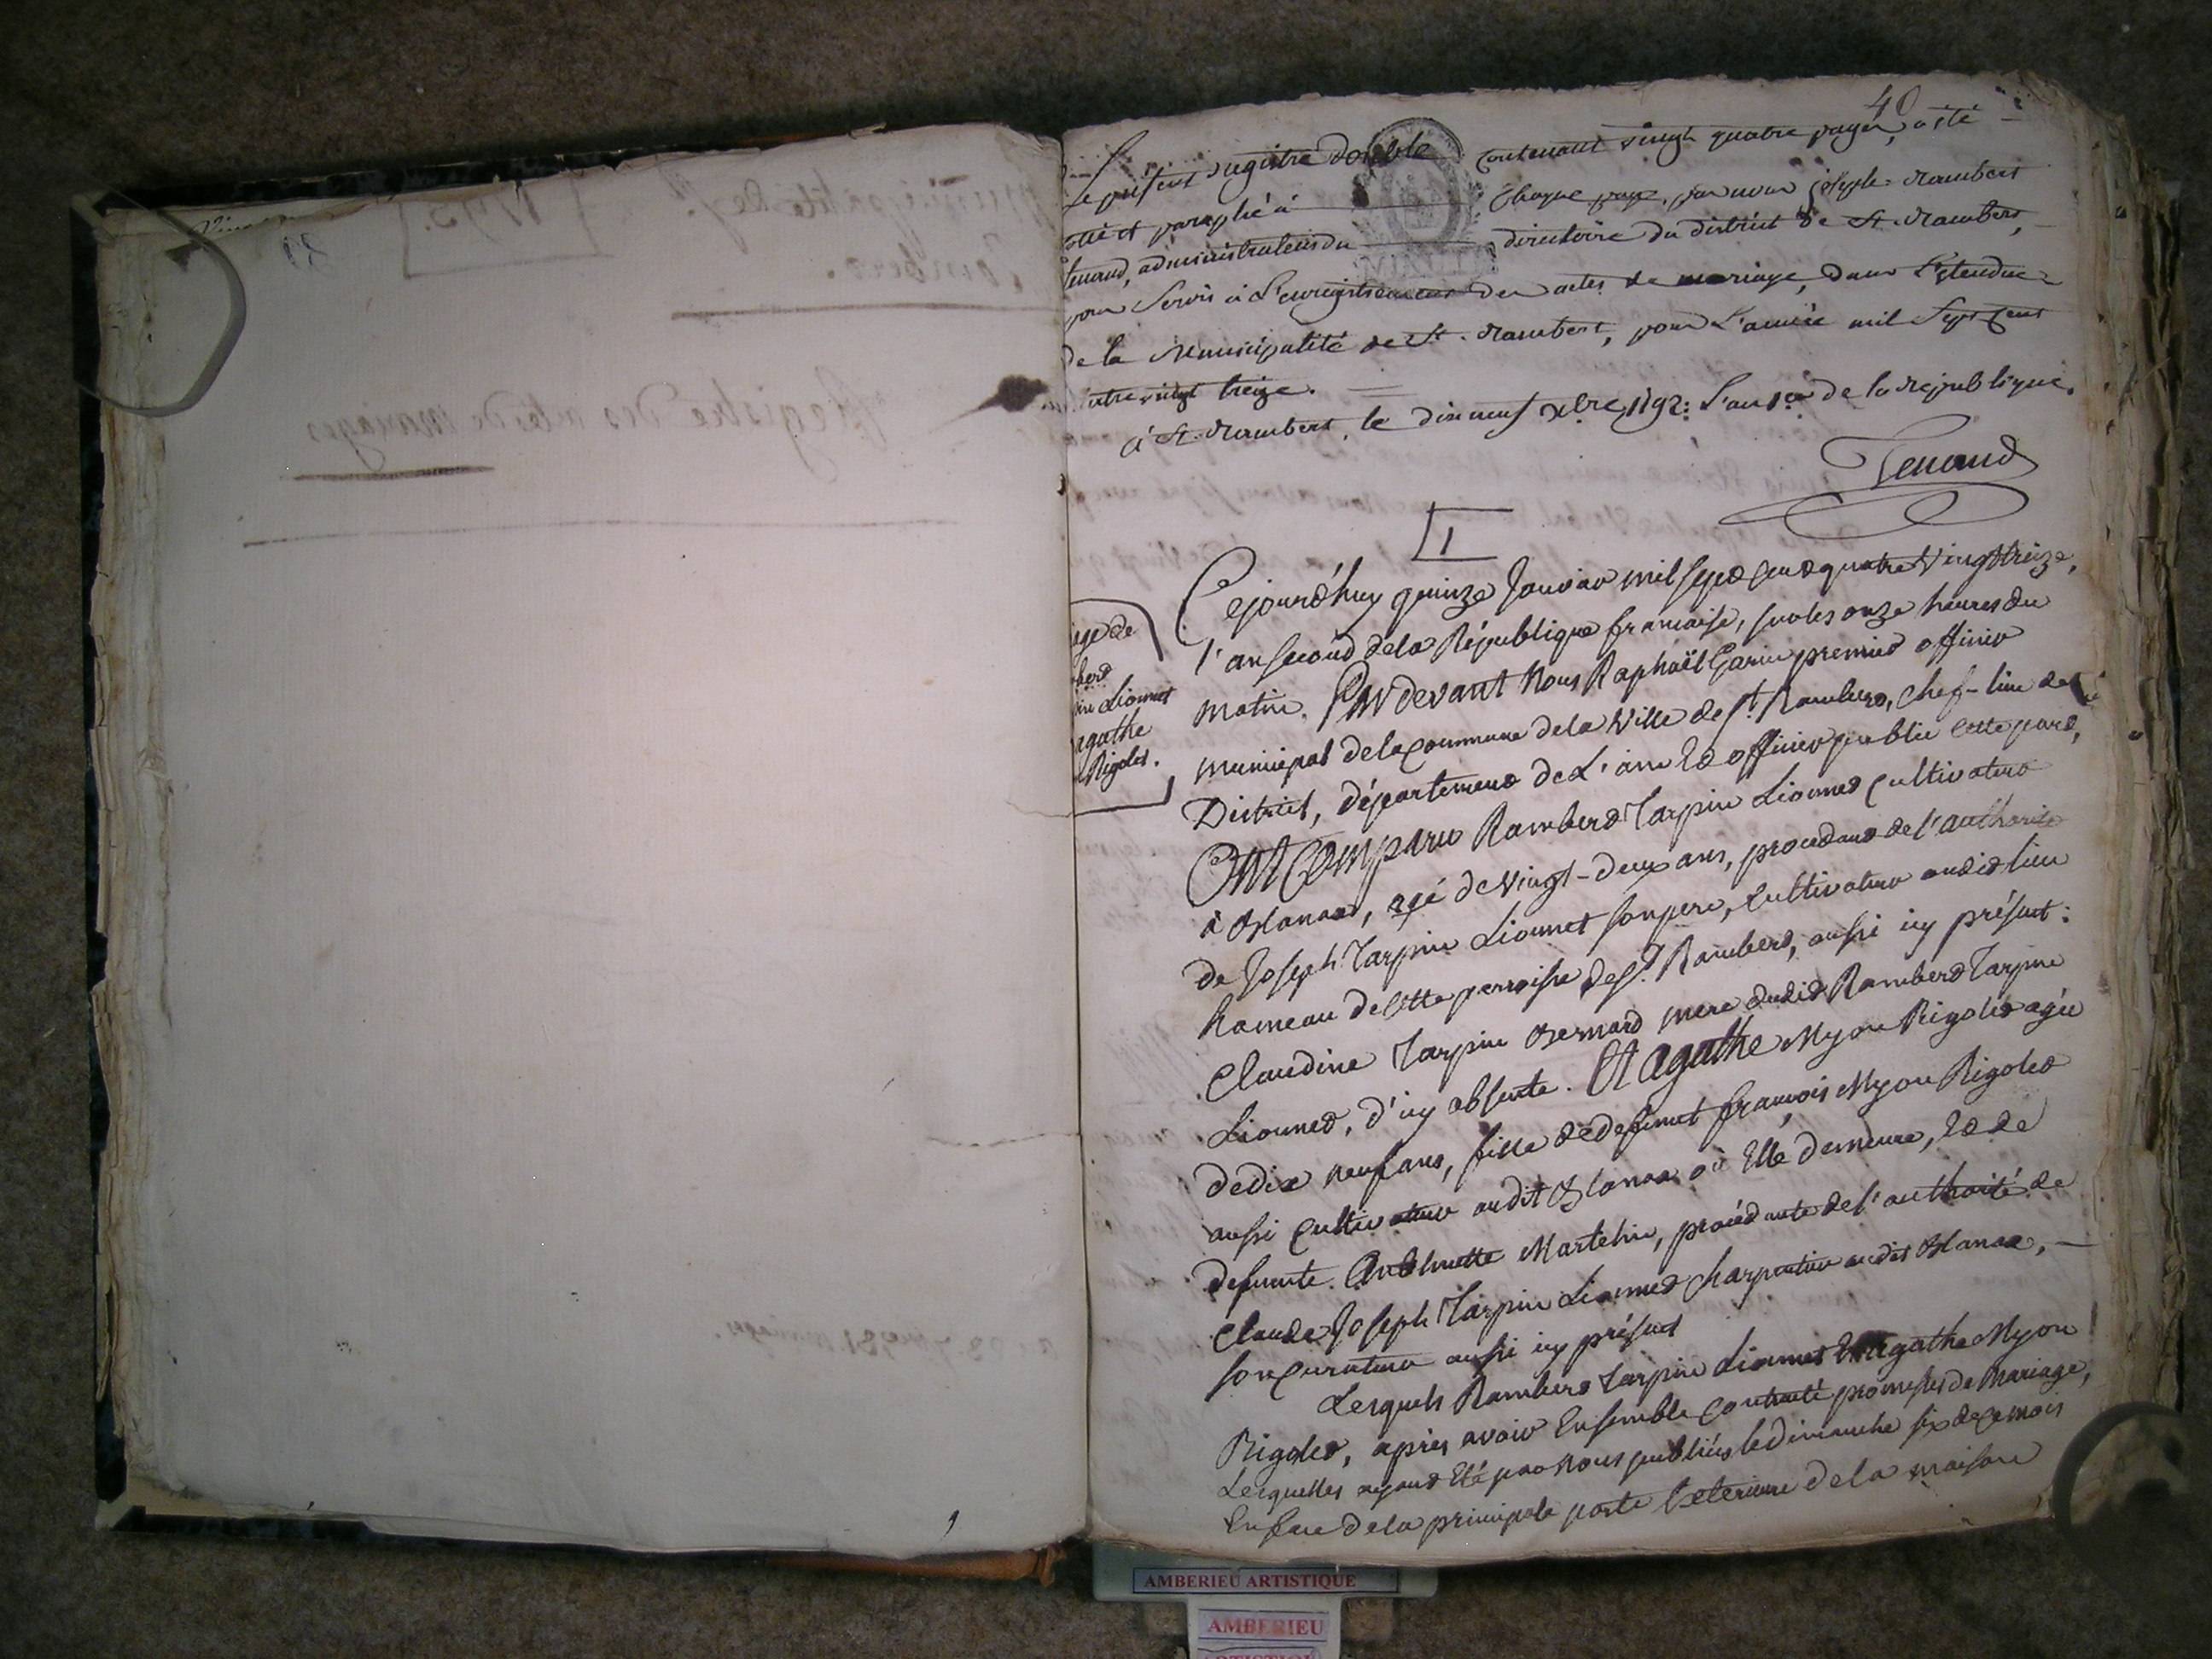 40
Le présent registre double contenant vingt quatre pages, a été
cotté et paraphé à chaque page, par nous joseph-Rambert
tenand, administrateur du directoire du district de St. Rambert,
pour servir à l'enregistrement des actes de mariage, dans l'etendue
de la Municipalité de St. Rambert, pour l'année mil sept cent
quatre vingt treize.
à St. Rambert, le dix neuf xbre 1792: l'an 1er de la republique.
Tenand
1
Cejourd'huy quinze Janvier mil sept cent quatre Vingt treize,
l'an second de la République francaise, sur les onze heures du
matin. Pardevant Nous Raphaël Garin premier officier
municipal de la Commune de la Ville de St. Rambert, chef-lieu de
District, département de L'ain Et officier public cette part,
Ont Comparu Rambert Tarpin Lionnet Cultivateur
à Blanaz, agé de Vingt-deux ans, procedant de l'authorité
de Joseph Tarpin Lionnet son pere, Cultivateur audit lieu
hameau de cette parroisse de St. Rambert, aussi icy présent:
Claudine Tarpin Bernard mere dudit Rambert Tarpin
Lionnet, d'icy absente. Et Agathe Myon Rigolet agée
de dix neuf ans, fille de defunt francois Myon Rigolet
aussi Cultivateur audit Blanaz où Elle demeure, Et de
defunte Anthelmette Martelin, procédante de l'authorité de
Claude Joseph Tarpin Lionnet Charpentier audit Blanaz,
son Curateur aussi icy présent
Lesquels Rambert Tarpin Lionnet Et Agathe Myon
Rigolet, après avoir Ensemble Contracté promesses de Mariage,
Lesquelles ayant Eté par Nous publiées le dimanche six de ce mois
En face de la principale porte Exterieure de la maison
age de
bert
pin Lionnet
agathe
Rigolet.